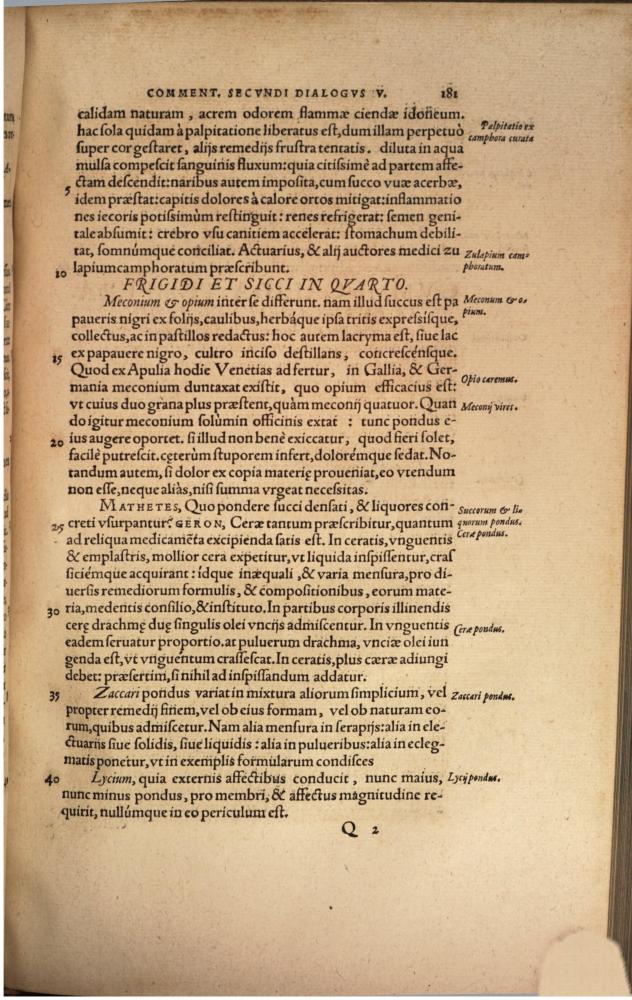 COMMENT. SECVNDI DIALOGVS V. 181
calidam naturam, acrem odorem flammæ ciendæ idoneum.
hac sola quidam à palpitatione liberatus est, dum illam perpetuò
Palpitatio ex
super cor gestaret, alijs remedijs frustra tentatis. diluta in aqua
camphora curata
mulsa compescit sanguinis fluxum: quia citissimè ad partem affe-
5 ctam descendit: naribus autem imposita, cum succo vuæ acerbæ,
idem præstat: capitis dolores à calore ortos mitigat: inflammatio
nes iecoris potissimùm restinguit: renes refrigerat: semen geni-
tale absumit: crebro vsu canitiem accelerat: stomachum debili-
tat, somnúmque conciliat. Actuarius, & alij auctores medici zu
Zulapium cam-
10 lapiumcamphoratum præscribunt.
phoratum.
FRIGIDI ET SICCI IN QVARTO.
Meconium & opium inter se differunt. nam illud succus est pa
Meconum & o-
paueris nigri ex folijs, caulibus, herbáque ipsa tritis expressisque,
pium.
collectus, ac in pastillos redactus: hoc autem lacryma est, siue lac
15 ex papauere nigro, cultro inciso destillans, concrescénsque.
Quod ex Apulia hodie Venetias adfertur, in Gallia, & Ger-
mania meconium duntaxat existit, quo opium efficacius est:
Opio caremus.
vt cuius duo grana plus præstent, quàm meconij quatuor. Quan
Meconij vires.
do igitur meconium solùm in officinis extat : tunc pondus e-
20 ius augere oportet. si illud non benè exiccatur, quod fieri solet,
facilè putrescit. cęterùm stuporem infert, dolorémque sedat. No-
tandum autem, si dolor ex copia materię proueniat, eo vtendum
non esse, neque aliàs, nisi summa vrgeat necessitas.
MATHETES, Quo pondere succi densati, & liquores con-
Succorum & li-
25 creti vsurpantur? GERON, Ceræ tantum præscribitur, quantum
quorum pondus.
ad reliqua medicamẽta excipienda satis est. In ceratis, vnguentis
Ceræ pondus.
& emplastris, mollior cera expetitur, vt liquida inspissentur, cras
siciémque acquirant: idque inæquali, & varia mensura, pro di-
uersis remediorum formulis, & compositionibus, eorum mate-
30 ria, medentis consilio, & instituto. In partibus corporis illinendis
cerę drachmę duę singulis olei vncijs admiscentur. In vnguentis
Ceræ pondus.
eadem seruatur proportio. at puluerum drachma, vnciæ olei iun
genda est, vt vnguentum crassescat. In ceratis, plus cæræ adiungi
debet: præsertim, si nihil ad inspissandum addatur.
35 Zaccari pondus variat in mixtura aliorum simplicium, vel
Zaccari pondus.
propter remedij finem, vel ob eius formam, vel ob naturam eo-
rum, quibus admiscetur. Nam alia mensura in serapijs: alia in ele-
ctuarijs siue solidis, siue liquidis : alia in pulueribus: alia in ecleg-
matis ponetur, vt in exemplis formularum condisces
40 Lycium, quia externis affectibus conducit, nunc maius,
Lycij pondus.
nunc minus pondus, pro membri, & affectus magnitudine re-
quirit, nullúmque in eo periculum est.
Q 2